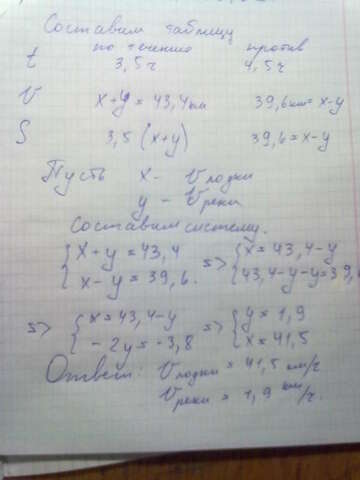 Составим таблицу
по течению против
t 3,5ч 4,5ч
V x+y = 43,4км 39,6км = x-y
S 3,5 (x+y) 39,6 = x-y
Пусть x - V лодки
y - V реки
Составим систему.
{x+y = 43,4 => {x = 43,4-y
{x-y = 39,6. {43,4-y-y=39,6
=> {x = 43,4-y => {y = 1,9
{-2y = -3,8 {x = 41,5
Ответ: V лодки = 41,5 км/ч
V реки = 1,9 км/ч.